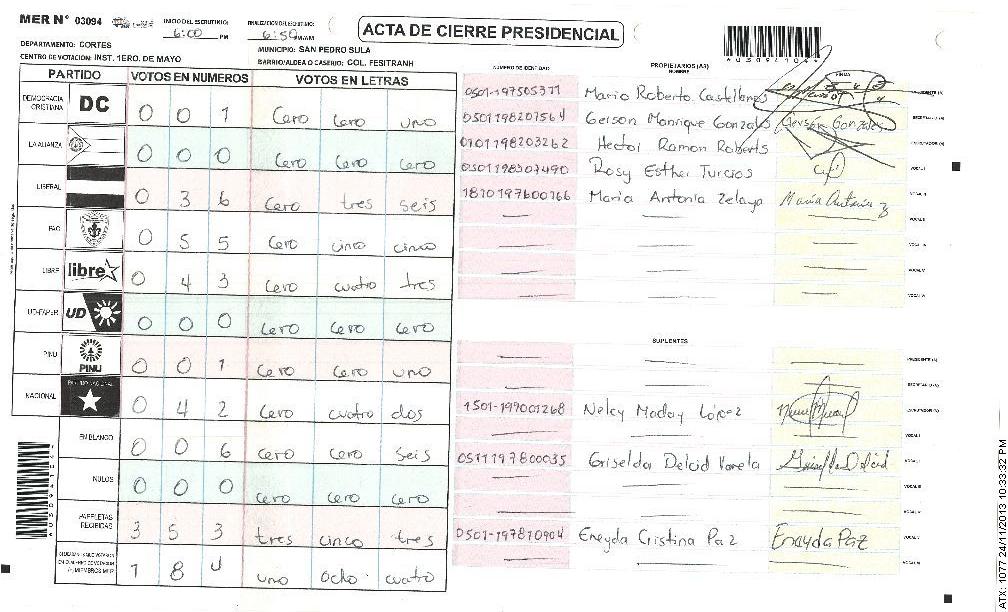 MER N° 03094 INICIO DEL ESCRUTINIO: 6:00 PM FINALIZACION DEL ESCRUTINIO: 6:50 PM/AM
ACTA DE CIERRE PRESIDENCIAL
DEPARTAMENTO: CORTES MUNICIPIO: SAN PEDRO SULA
CENTRO DE VOTACION: INST. 1ERO. DE MAYO BARRIO/ALDEA O CASERIO: COL. FESITRANH
PARTIDO VOTOS EN NUMEROS VOTOS EN LETRAS
DEMOCRACIA CRISTIANA DC 0 0 1 Cero Cero uno
LA ALIANZA 0 0 0 Cero Cero Cero
LIBERAL 0 3 6 Cero tres seis
PAC 0 5 5 Cero cinco cinco
LIBRE libre 0 4 3 Cero cuatro tres
UD-FAPER UD 0 0 0 Cero Cero Cero
PINU PINU 0 0 1 Cero Cero uno
NACIONAL 0 4 2 Cero cuatro dos
EN BLANCO 0 0 6 Cero Cero seis
NULOS 0 0 0 Cero Cero Cero
PAPELETAS RECIBIDAS 3 5 3 tres cinco tres
1 8 4 uno ocho cuatro
NUMERO DE IDENTIDAD PROPIETARIOS (AS) NOMBRE FIRMA
Mario Roberto Castellanos
0501198207564 Gerson Manrique Gonzales Gerson Gonzales
Hector Ramon Roberts
0501198307490 Rosy Esther Turcios
Maria Antonia Zelaya Maria Antonia Z
SUPLENTES
1501-199001268 Nelcy Maday López
0511197800035 Griselda Delcid Varela
0501-197810904 Eneyda Cristina Paz Eneyda Paz
ATX: 1077 24/11/2013 10:33:32 PM